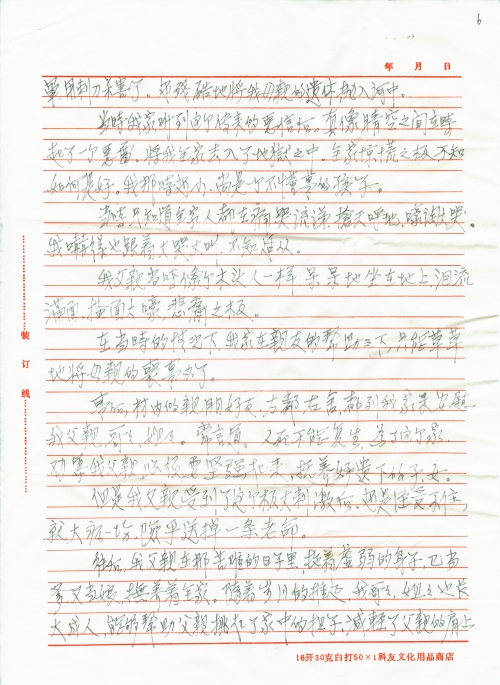 6
年 月 日
軍用刺刀杀害了。把残酷地将我母親的遗体抛入河中。
当時我家听到这个传来的恶信后,真像晴空之间立時
起了一个恶雷。将我全家丢入了地獄之中。全家惊慌之极,不知
如何是好。我那時还小,尚是个不懂事的孩子。
只知道全家人都在痛哭流涕,搶天呼地,嚎啕大哭。
我嚇得也跟着大哭大叫,不知怎从。
我父親当時像个木头人一样,呆呆地坐在地上,泪流
满面,掩面大嚎,悲痛之极。
在当時的情况下,我家在親友的帮助之下,只能草草
地将母親的喪事办了。
事后,村内的親朋好友,左鄰右舍,都到我家来安慰
我父親、哥哥、姐姐。常言道,人死不能复生,为了这个家,
劝导我父親,必须要坚强起来,抚养好遗下的子女。
但是我父親受到了这个极大刺激后,还是伍忍不住,
就大病一场,險乎送掉一条老命。
往后,我父親在那苦难的日子里,拖着虚弱的身子,已当
爹又当娘,撫养着全家。随着岁月的推迟,我哥哥、姐姐也长
大成人,能够帮助父親挑起了家中的担子,减轻了父親的肩上
装订线
16开30克白打50×1科友文化用品商店